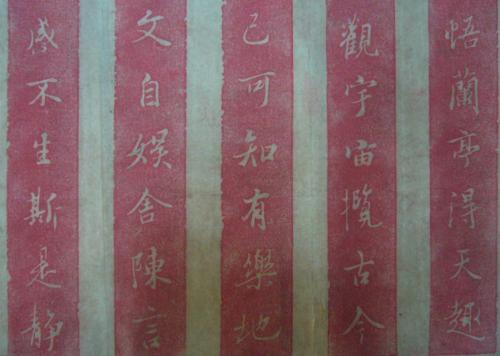 悟蘭亭得天趣
觀宇宙攬古今
己可知有樂地
文自娱舍陳言
感不生斯是静